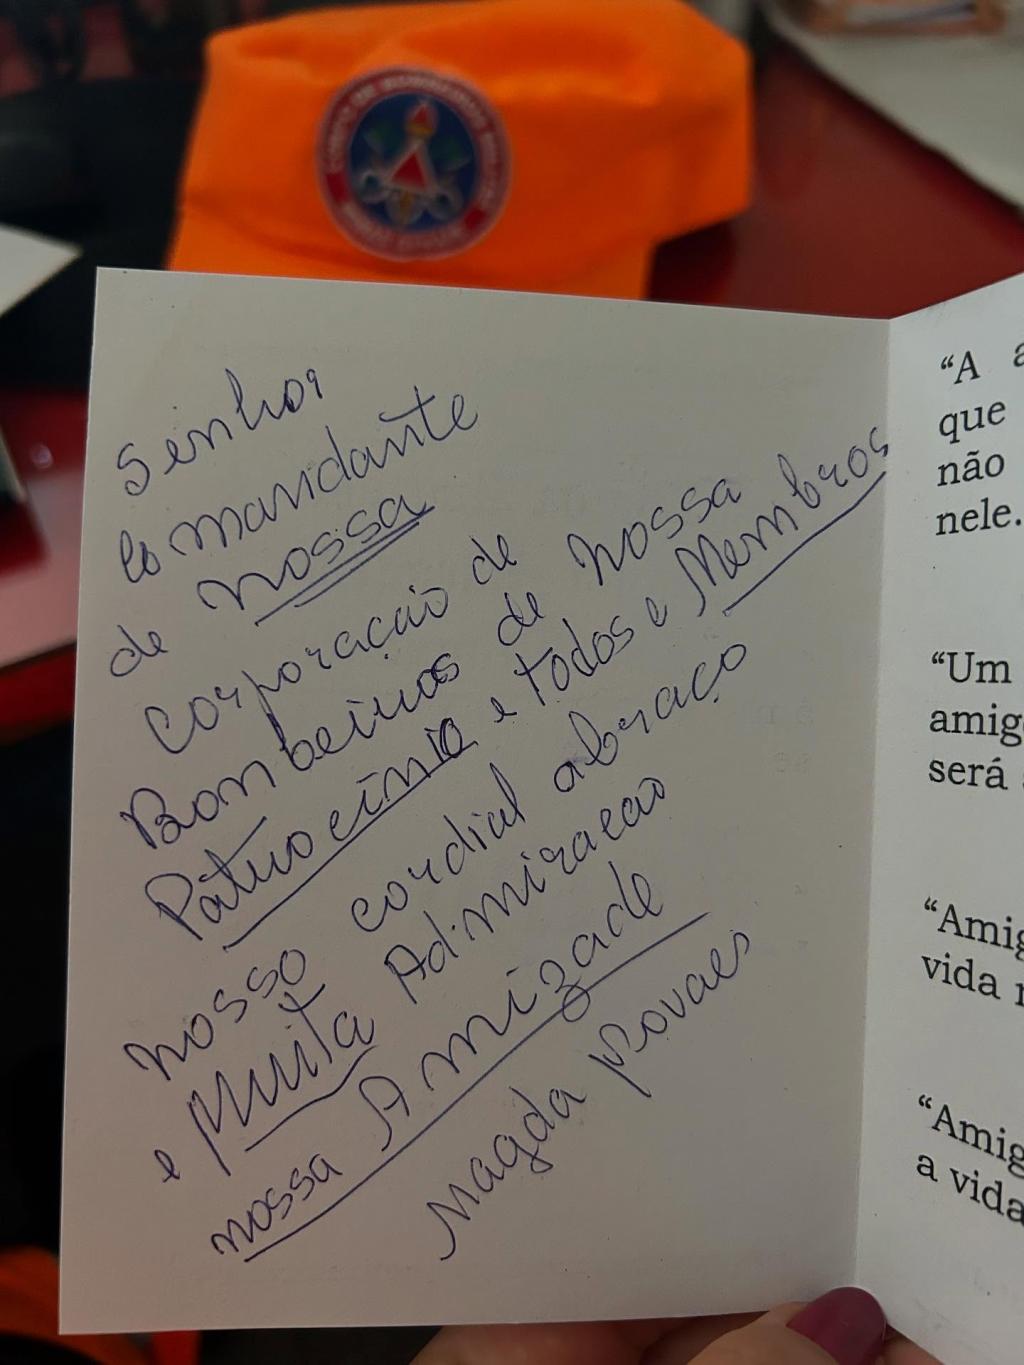 Senhor
Comandante
de nossa
corporação de
Bombeiros de nossa
Patrocínio e todos e Membros
nosso cordial abraço
e Muita Admiração
nossa Amizade
Magda
“A a
que
não
nele.
“Um
amigo
será
“Amig
vida
“Amig
a vida